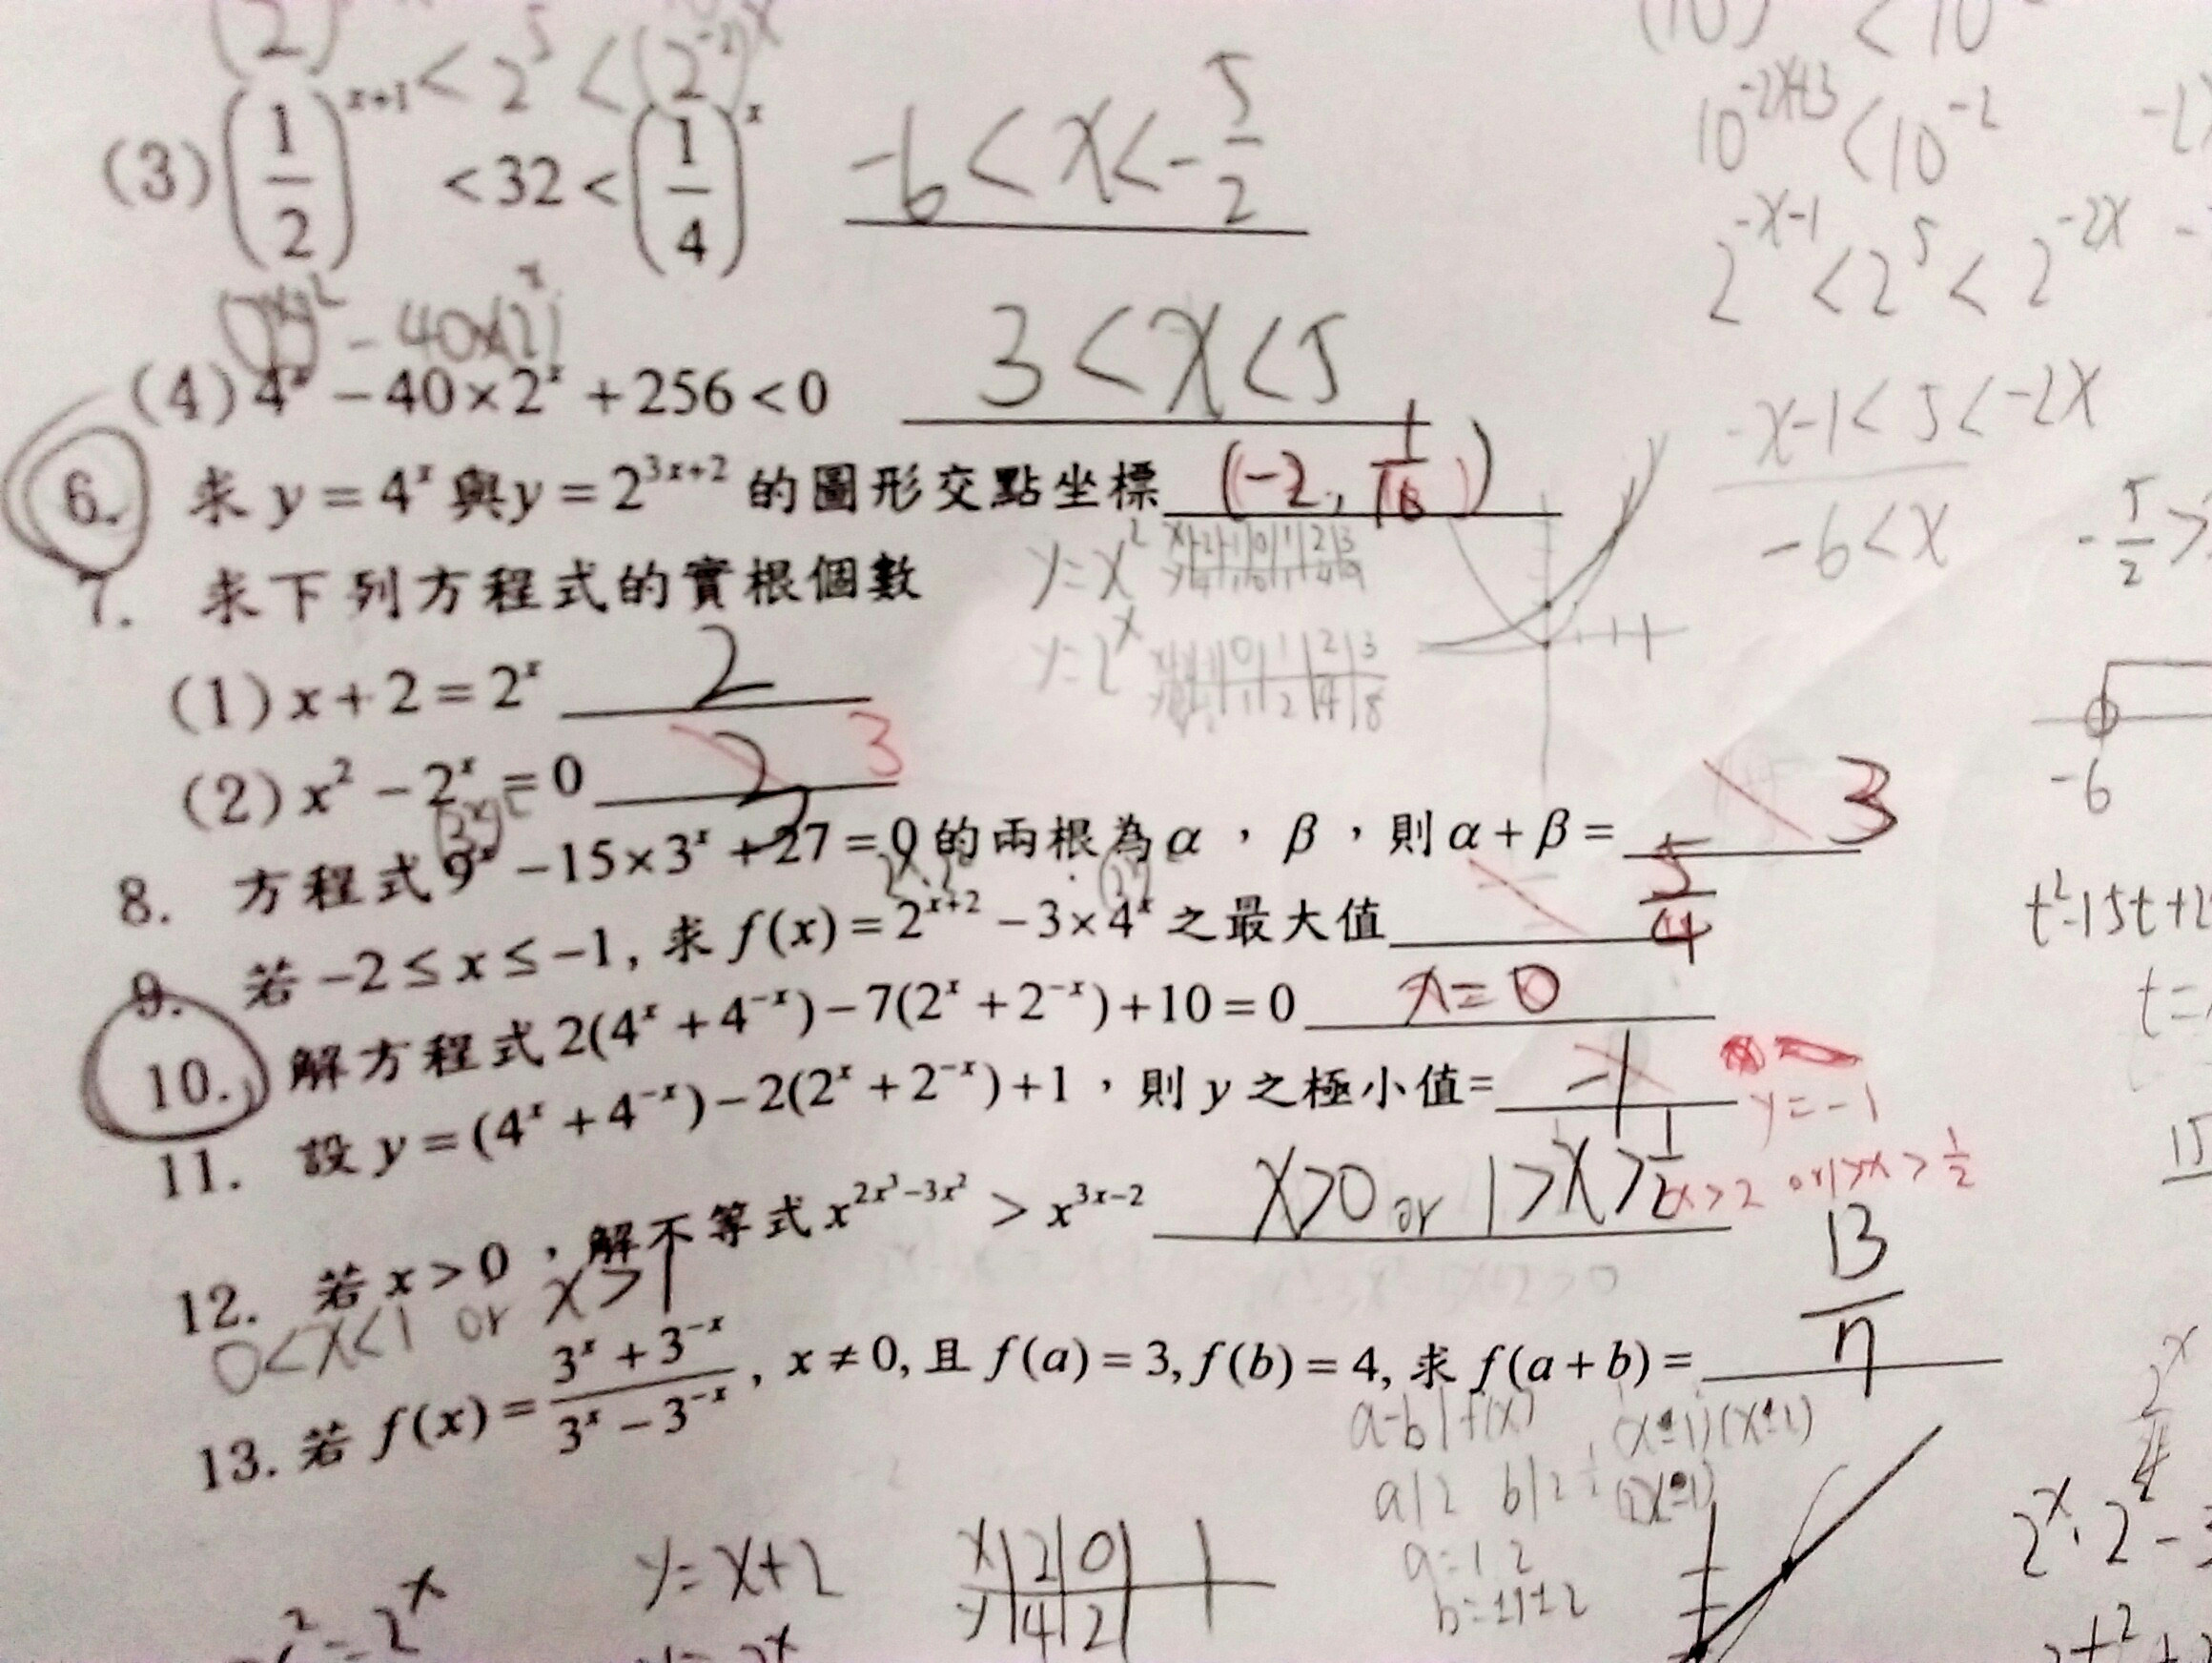 < 2^5 < (2^{-2})^x
(3) (1/2)^{x+1} < 32 < (1/4)^x -6 < x < -5/2
- 40×(2^x)
(4) 4^x - 40×2^x + 256 < 0 3 < x < 5
6. 求 y = 4^x 與 y = 2^{3x+2} 的圖形交點坐標 (-2, 1/16)
7. 求下列方程式的實根個數
(1) x + 2 = 2^x 2
(2) x^2 - 2^x = 0 2 3
8. 方程式 9^x - 15×3^x + 27 = 0 的兩根為 α , β , 則 α + β = 3
9. 若 -2 ≤ x ≤ -1, 求 f(x) = 2^{x+2} - 3×4^x 之最大值 5/4
10. 解方程式 2(4^x + 4^{-x}) - 7(2^x + 2^{-x}) + 10 = 0 x = 0
11. 設 y = (4^x + 4^{-x}) - 2(2^x + 2^{-x}) + 1 , 則 y 之極小值= -1 y = -1
12. 若 x > 0 , 解不等式 x^{2x^3-3x^2} > x^{3x-2} x>0 or 1>x>1/2 x>2 or 1>x>1/2
0<x<1 or x>1
13. 若 f(x) = (3^x + 3^{-x})/(3^x - 3^{-x}), x ≠ 0, 且 f(a) = 3, f(b) = 4, 求 f(a + b) = 13/7
y = x^2 x -2 -1 0 1 2 3
y 4 1 0 1 4 9
y = 2^x 0 1 2 3
1 2 4 8
10^{-2x+3} < 10^{-2}
2^{-x-1} < 2^5 < 2^{-2x}
-x-1 < 5 < -2x
-6 < x
-5/2 >
-6
t^2-15t+2
t =
15
a-b | f(x)
a|2 b|2
y = x+2 x 2 0
y 4 2
= 2^x
2^x
4
2^x · 2